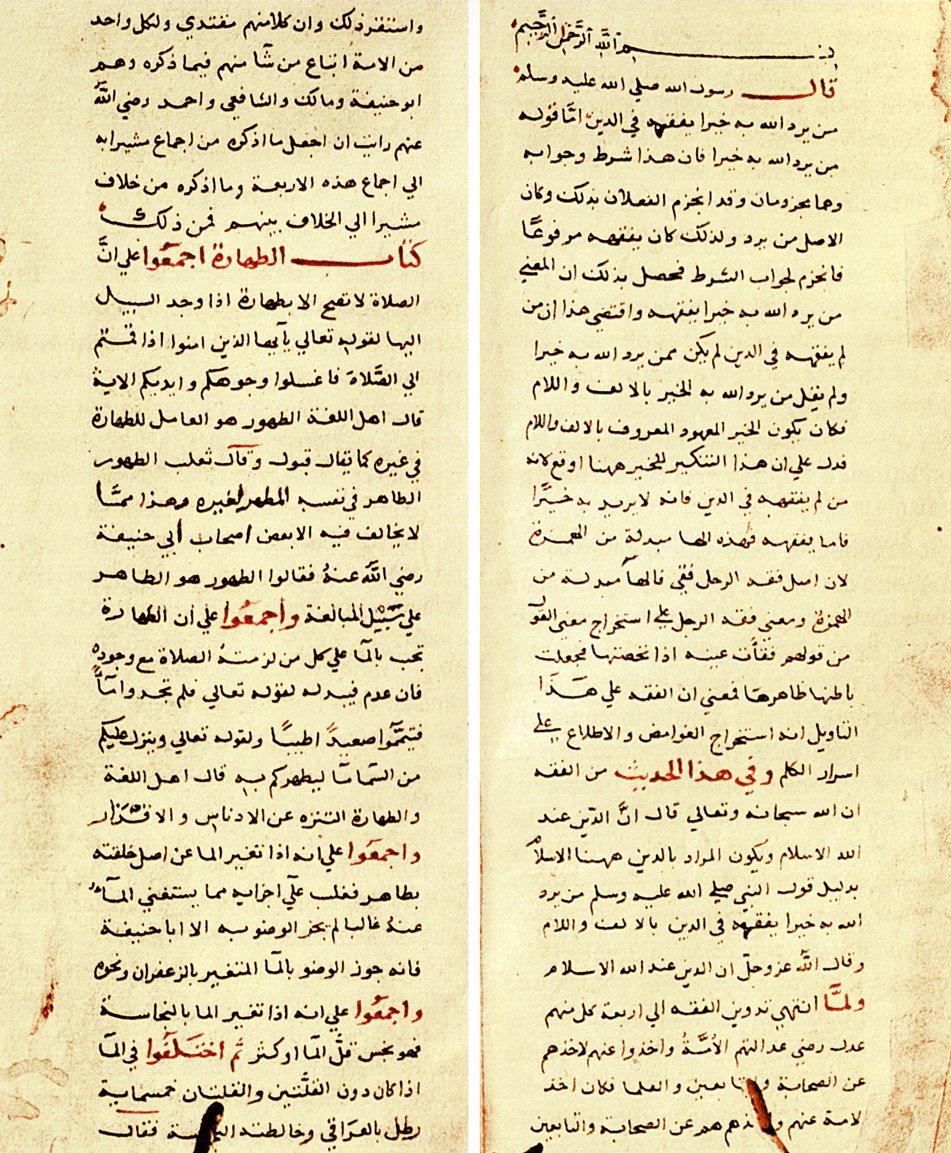 بسم الله الرحمن الرحيم
قال رسول الله صلي الله عليه وسلم
من يرد الله به خيرا يفقهه في الدين امّا قوله
من يرد الله به خيرا فان هذا شرط وجوابه
وهما مجزومان وقد انجزم الفعلان بذلك وكان
الاصل من يرد ولذلك كان يفقهه مرفوعًا
فانجزم لجواب الشرط فحصل بذلك ان المعني
من يرد الله به خيرا يفقهه واقتضي هذا ان من
لم يفقهه في الدين لم يكن ممن يرد الله به خيرا
ولم يقل من يرد الله به الخير بالالف واللام
فكان يكون الخير المعهود المعروف بالالف واللام
فدل علي ان هذا التنكير للخير ههنا اوقع لانه
من لم يفقهه في الدين فانه لا يريد به خيرًا
فاما يفقهه فهذه الها مبدلة من الهمزة
لان اصل فقه الرجل فقي فالهآ مبدلة من
الهمزة ومعني فقه الرجل علي استخراج معني القول
من قولهم فقأت عينه اذا نخصتها فجعلت
باطنها ظاهرها فمعني ان الفقه علي هَذَا
التاويل انه استخراج الغوامض والاطلاع علي
اسرار الكلم وفي هذا الحديث من الفقه
ان الله سبحانه وتعالي قال انَّ الدّين عند
الله الاسلام ويكون المراد بالدين ههنا الاسلام
بدليل قول النبي صلي الله عليه وسلم من يرد
الله به خيرا يفقهه في الدين بالالف واللام
وقال الله عز وجلّ ان الدين عند الله الاسلام
ولمَّا انتهي تدوين الفقه الي اربعة كل منهم
عدل رضي عدالتهم الأمَّةُ واخذوا عنهم لاخذهم
عن الصحابة والتابعين والعلما فكان اخذ
لامة عنهم واخذهم هم عن الصحابة والتابعين
واستقر ذلك وان كلامنهم مقتدي ولكل واحد
من الامة اتباع من شآ منهم فيما ذكره وهم
ابو حنيفة ومالك والشافعي واحمد رضي اللهُ
عنهم رايت ان اجعل ما اذكره من اجماع مشيرا به
الي اجماع هذه الاربعة وما اذكره من خلاف
مشيرا الي الخلاف بينهم فمن ذلك
كتاب الطهارة اجمعُوا علي انَّ
الصلاة لا تصح الا بطهارة اذا وجد السبيل
اليها لقوله تعالي يآيها الذين امنوا اذا قمتم
الي الصَّلاة فاغسلوا وجوهكم وايديكم الاية
قال اهل اللغة الطهور هو العامل للطهارة
في غيره كما يقال قبول وقال ثعلب الطهور
الطاهر في نفسه المطهر لغيره وهذا ممَّا
لا يخالف فيه الا بعض اصحاب أبي حنيفة
رضي اللَّه عنهُ فقالوا الطهور هو الطاهر
علي سَبيْل المبالغة واجمعُوا علي ان الطهارة
تجب بالمآ علي كل من لزمتهُ الصلاة مع وجوده
فان عدم فببدله لقوله تعالي فلم تجدوا مآءً
فتيمَّموا صعيدًا طيبًا ولقوله تعالي وينزل عليكم
من السّمآ مآ ليطهركم به قال اهل اللغة
والطهارة التنزه عن الادناس والاقذار
واجمعَوا علي انه اذا تغير الما عن اصل خلقته
بطاهر فغلب علي اجزايه مما يستغني المآء
عنهُ غالبا لم يجز الوضوء به الا ابا حنيفة
فانه جوز الوضو بالمآ المتغير بالزعفران ونحوه
واجمعُوا علي انه اذا تغير الما بالنجاسة
فهو نجس قلَّ المآ او كثر ثم اختلفوا في المآ
اذا كان دون القلّتين والقلتان خمسماية
رطل بالعراقي وخالطته النجاسة فقال